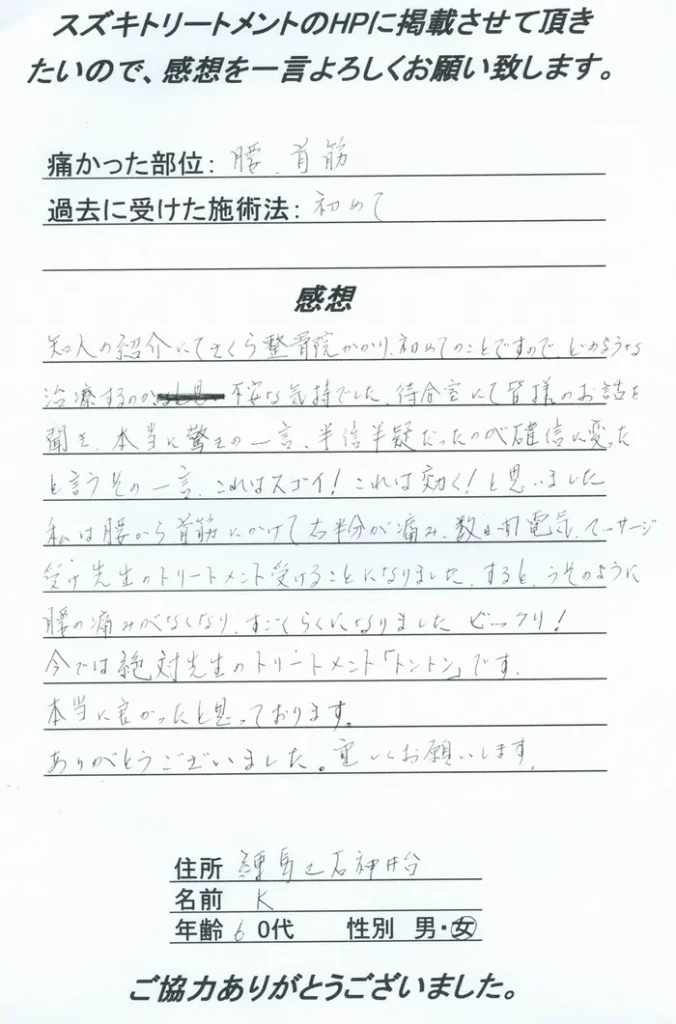 スズキトリートメントのHPに掲載させて頂き
たいので、感想を一言よろしくお願い致します。
痛かった部位：腰、首筋
過去に受けた施術法：初めて
感想
知人の紹介にてさくら整骨院かかり、初めてのことですので、どのような
治療するのか 不安な気持でした、待合室にて皆様のお話を
聞き、本当に驚きの一言、半信半疑だったのが確信に変った
と言うその一言、これはスゴイ！これは効く！と思いました
私は腰から首筋にかけて右半分が痛み、数日間電気、マッサージ
受け先生のトリートメント受けることになりました、すると、うそのように
腰の痛みがなくなり、すごくらくになりました ビックリ！
今では絶対先生のトリートメント「トントン」です。
本当に良かったと思っております。
ありがとうございました。宜しくお願いします。
住所 練馬区石神井台
名前 K
年齢 60代 性別 男・女
ご協力ありがとうございました。